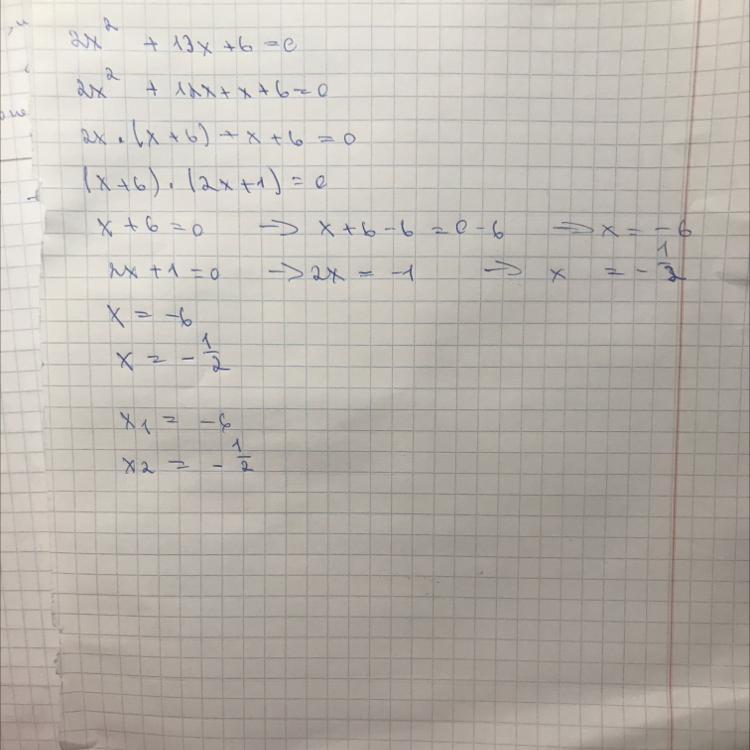 2x² + 13x + 6 = 0
2x² + 12x + x + 6 = 0
2x · (x + 6) + x + 6 = 0
(x + 6) · (2x + 1) = 0
x + 6 = 0 → x + 6 - 6 = 0 - 6 → x = - 6
2x + 1 = 0 → 2x = -1 → x = - 1/2
x = -6
x = - 1/2
x1 = -6
x2 = - 1/2